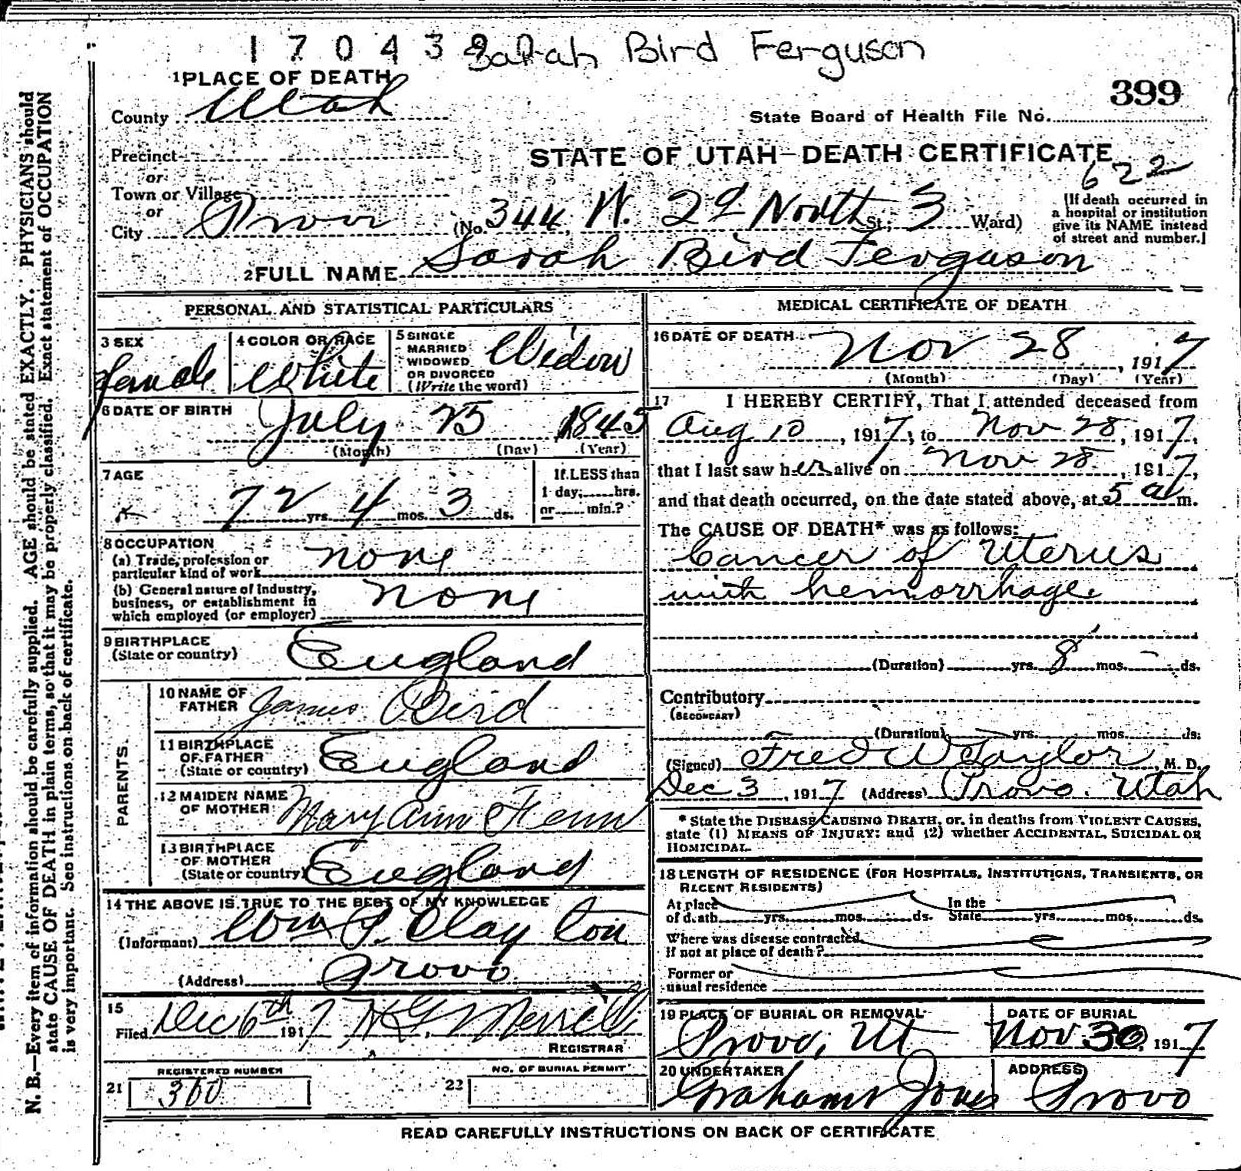 170439 Sarah Bird Ferguson
1 PLACE OF DEATH
399
County Utah
State Board of Health File No.
Precinct
STATE OF UTAH—DEATH CERTIFICATE
or
622
Town or Village
or
City Provo (No. 344 W. 2d North St; 3 Ward)
[If death occurred in
a hospital or institution
give its NAME instead
of street and number.]
2 FULL NAME Sarah Bird Ferguson
PERSONAL AND STATISTICAL PARTICULARS
3 SEX
female
4 COLOR OR RACE
White
5 SINGLE
MARRIED
WIDOWED
OR DIVORCED
(Write the word)
Widow
6 DATE OF BIRTH
July 25 1845
(Month) (Day) (Year)
7 AGE
72 yrs. 4 mos. 3 ds.
If LESS than
1 day, hrs.
or min.?
8 OCCUPATION
(a) Trade, profession or
particular kind of work none
(b) General nature of Industry,
business, or establishment in
which employed (or employer) none
9 BIRTHPLACE
(State or country) England
PARENTS.
10 NAME OF
FATHER James Bird
11 BIRTHPLACE
OF FATHER
(State or country) England
12 MAIDEN NAME
OF MOTHER Mary Ann Fenn
13 BIRTHPLACE
OF MOTHER
(State or country) England
14 THE ABOVE IS TRUE TO THE BEST OF MY KNOWLEDGE
(Informant) Wm P. Clayton
(Address) Provo
15
Filed Dec 6th 1917 H G. Merrill
REGISTRAR
REGISTERED NUMBER
21 360
NO. OF BURIAL PERMIT
22
MEDICAL CERTIFICATE OF DEATH
16 DATE OF DEATH
Nov 28, 1917
(Month) (Day) (Year)
17 I HEREBY CERTIFY, That I attended deceased from
Aug 10, 1917, to Nov 28, 1917,
that I last saw her alive on Nov 28, 1917,
and that death occurred, on the date stated above, at 5 a m.
The CAUSE OF DEATH* was as follows:
Cancer of Uterus
with hemorrhage
(Duration) yrs. 8 mos. - ds.
Contributory
(SECONDARY)
(Duration) yrs. mos. ds.
(Signed) Fred W Taylor, M. D.
Dec 3, 1917 (Address) Provo. Utah
* State the DISEASE CAUSING DEATH, or, in deaths from VIOLENT CAUSES,
state (1) MEANS OF INJURY; and (2) whether ACCIDENTAL, SUICIDAL OR
HOMICIDAL.
18 LENGTH OF RESIDENCE (FOR HOSPITALS, INSTITUTIONS, TRANSIENTS, OR
RECENT RESIDENTS)
At place In the
of death yrs. mos. ds. State yrs. mos. ds.
Where was disease contracted,
if not at place of death?
Former or
usual residence
19 PLACE OF BURIAL OR REMOVAL
Provo, Ut
DATE OF BURIAL
Nov 30, 1917
20 UNDERTAKER
Graham Jones
ADDRESS
Provo
READ CAREFULLY INSTRUCTIONS ON BACK OF CERTIFICATE
N. B.—Every item of information should be carefully supplied. AGE should be stated EXACTLY. PHYSICIANS should
state CAUSE OF DEATH in plain terms, so that it may be properly classified. Exact statement of OCCUPATION
is very important. See instructions on back of certificate.